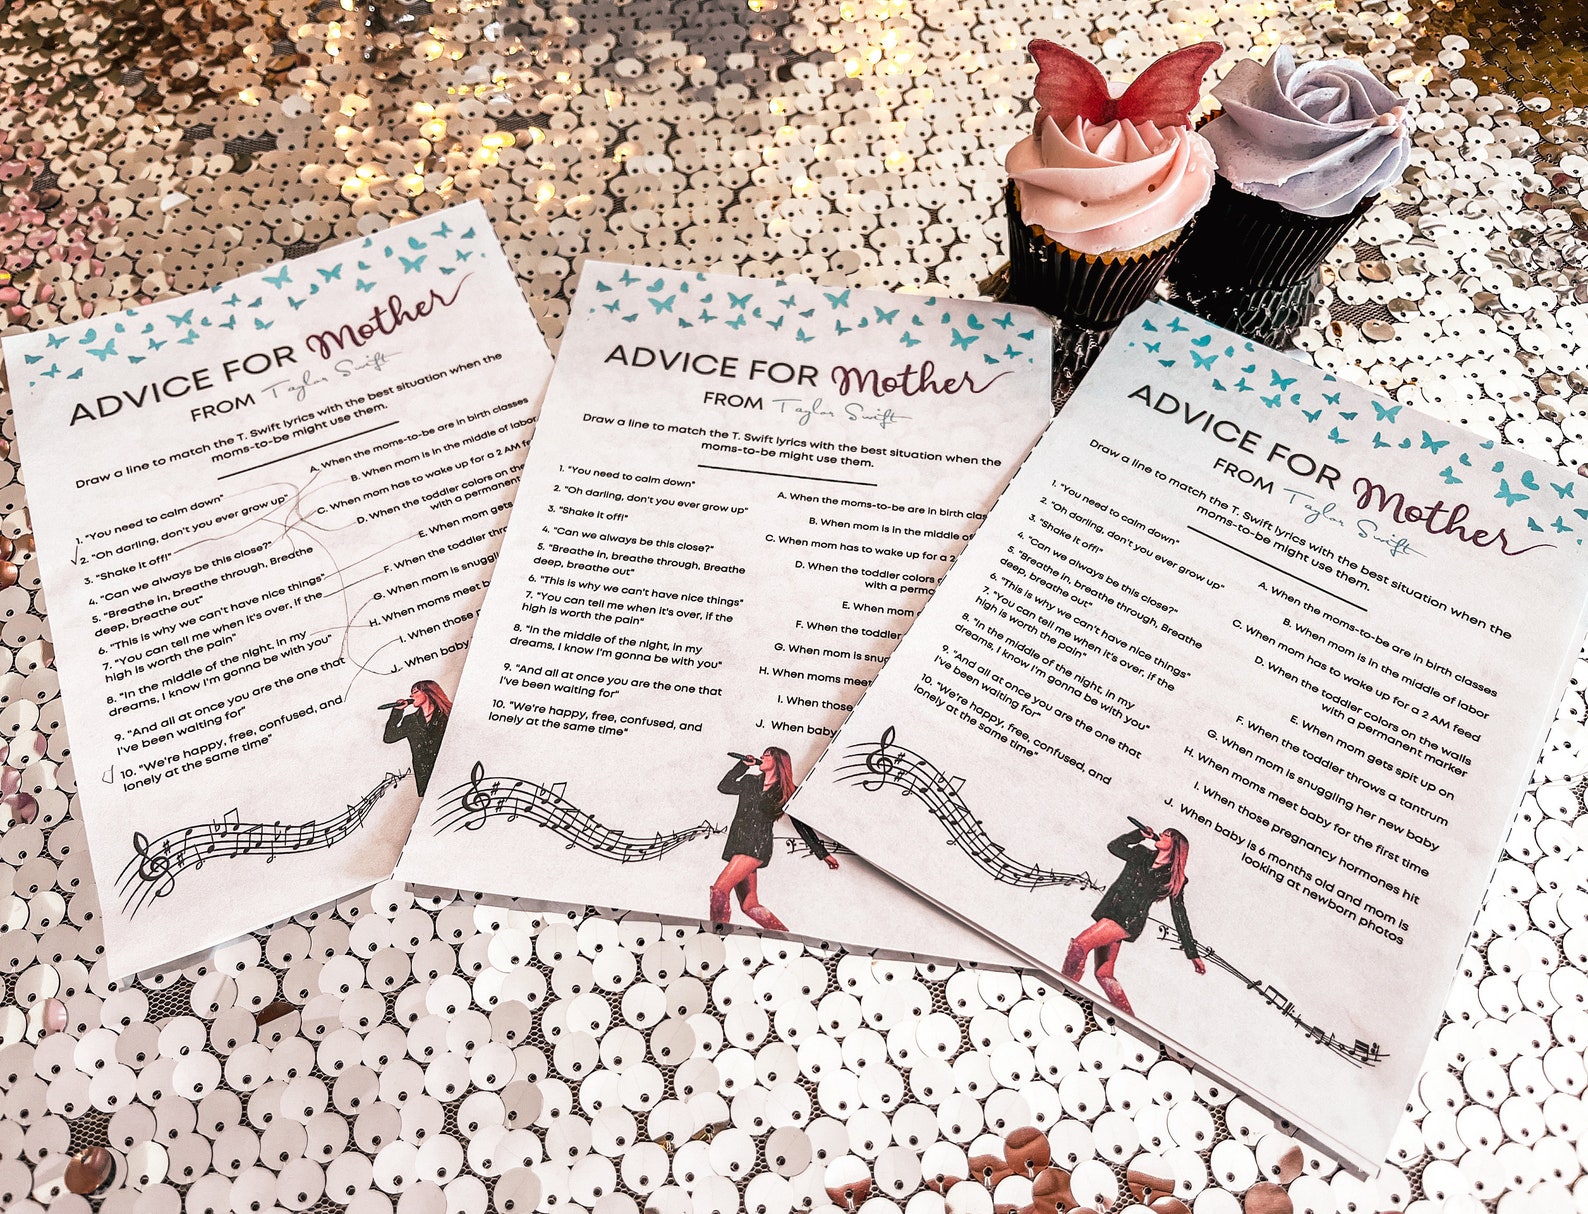 ADVICE FOR Mother
FROM Taylor Swift
Draw a line to match the T. Swift lyrics with the best situation when the
moms-to-be might use them.
1. "You need to calm down"
2. "Oh darling, don't you ever grow up"
3. "Shake it off!"
4. "Can we always be this close?"
5. "Breathe in, breathe through, Breathe
deep, breathe out"
6. "This is why we can't have nice things"
7. "You can tell me when it's over, if the
high is worth the pain"
8. "In the middle of the night, in my
dreams, I know I'm gonna be with you"
9. "And all at once you are the one that
I've been waiting for"
10. "We're happy, free, confused, and
lonely at the same time"
A. When the moms-to-be are in birth classes
B. When mom is in the middle of labor
C. When mom has to wake up for a 2 AM
D. When the toddler colors on the
with a permanent
E. When mom gets
F. When the toddler thr
G. When mom is snuggli
H. When moms meet b
I. When those
J. When baby
ADVICE FOR Mother
FROM Taylor Swift
Draw a line to match the T. Swift lyrics with the best situation when the
moms-to-be might use them.
1. "You need to calm down"
2. "Oh darling, don't you ever grow up"
3. "Shake it off!"
4. "Can we always be this close?"
5. "Breathe in, breathe through, Breathe
deep, breathe out"
6. "This is why we can't have nice things"
7. "You can tell me when it's over, if the
high is worth the pain"
8. "In the middle of the night, in my
dreams, I know I'm gonna be with you"
9. "And all at once you are the one that
I've been waiting for"
10. "We're happy, free, confused, and
lonely at the same time"
A. When the moms-to-be are in birth clas
B. When mom is in the middle of
C. When mom has to wake up for a 2
D. When the toddler colors
with a perma
E. When mom
F. When the toddler
G. When mom is snug
H. When moms meet
I. When those
J. When baby
ADVICE FOR Mother
FROM Taylor Swift
Draw a line to match the T. Swift lyrics with the best situation when the
moms-to-be might use them.
1. "You need to calm down"
2. "Oh darling, don't you ever grow up"
3. "Shake it off!"
4. "Can we always be this close?"
5. "Breathe in, breathe through, Breathe
deep, breathe out"
6. "This is why we can't have nice things"
7. "You can tell me when it's over, if the
high is worth the pain"
8. "In the middle of the night, in my
dreams, I know I'm gonna be with you"
9. "And all at once you are the one that
I've been waiting for"
10. "We're happy, free, confused, and
lonely at the same time"
A. When the moms-to-be are in birth classes
B. When mom is in the middle of labor
C. When mom has to wake up for a 2 AM feed
D. When the toddler colors on the walls
with a permanent marker
E. When mom gets spit up on
F. When the toddler throws a tantrum
G. When mom is snuggling her new baby
H. When moms meet baby for the first time
I. When those pregnancy hormones hit
J. When baby is 6 months old and mom is
looking at newborn photos